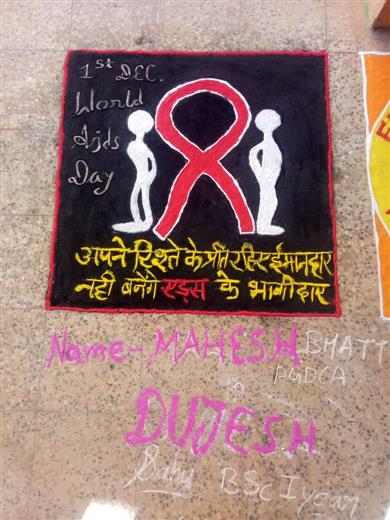 1st DEC.
World
Aids
Day
अपने रिश्ते के प्रति रहिए ईमानदार
नही बनेंगे एड्स के भागीदार
Name - MAHESH BHATT
PGDCA
DUJESH
Sahu BSc I year